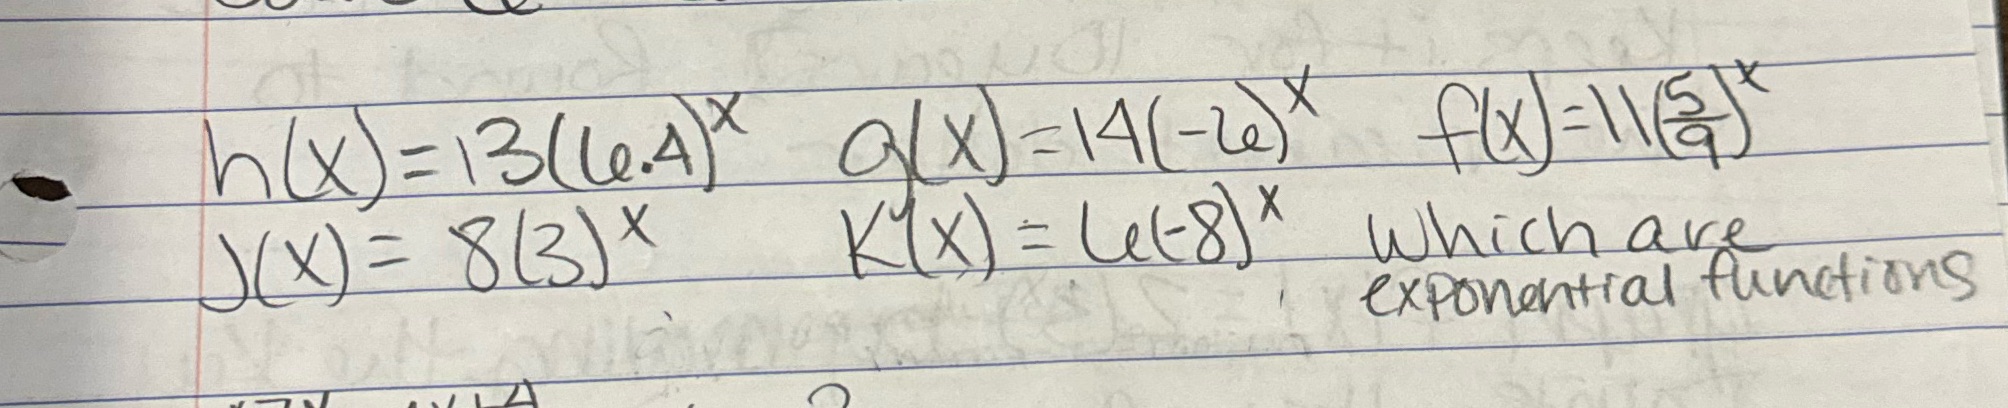 h(x)=13(6.4)^x g(x)=14(-6)^x f(x)=11(5/9)^x
J(x)= 8(3)^x K(x)=6(-8)^x which are
exponential functions